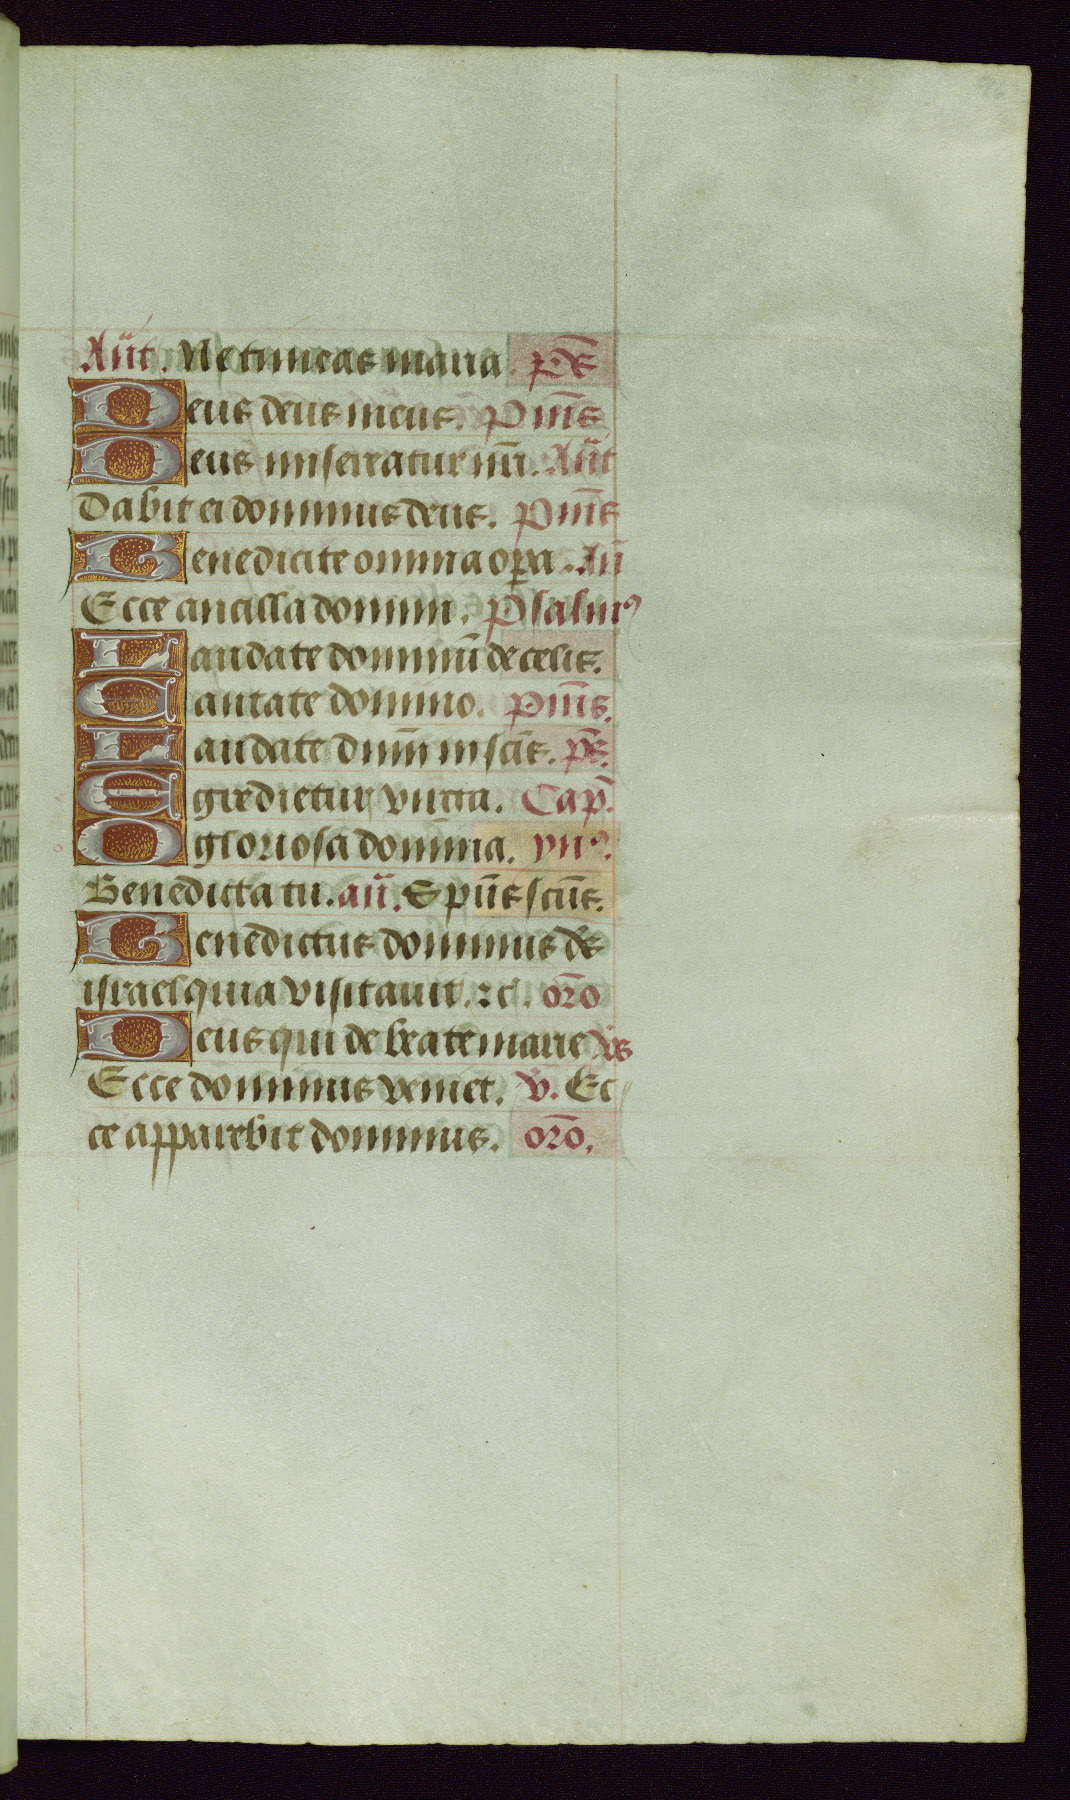 Añt. Ne timeas maria. p̄s
Deus deus meus. Pm̄s
Deus misereatur nr̄i. Añt
Dabit ei dominus deus. Pm̄s
Benedicite omnia oꝑa. Añ
Ecce ancilla domini. Psalmꝰ
Laudate dominū de celis.
Cantate domino. Pm̄s.
Laudate dn̄m in scīs. p̄s.
Egredietur virga. Cap̄.
O gloriosa domina. ynꝰ.
Benedicta tu. añ. Spūs scūs.
Benedictus dominus ds̄
israel quia visitavit. ⁊c̄. or̄o
Deus qui de beate marie
Ecce dominus veniet. v̄. Ec
ce apparebit dominus. or̄o.